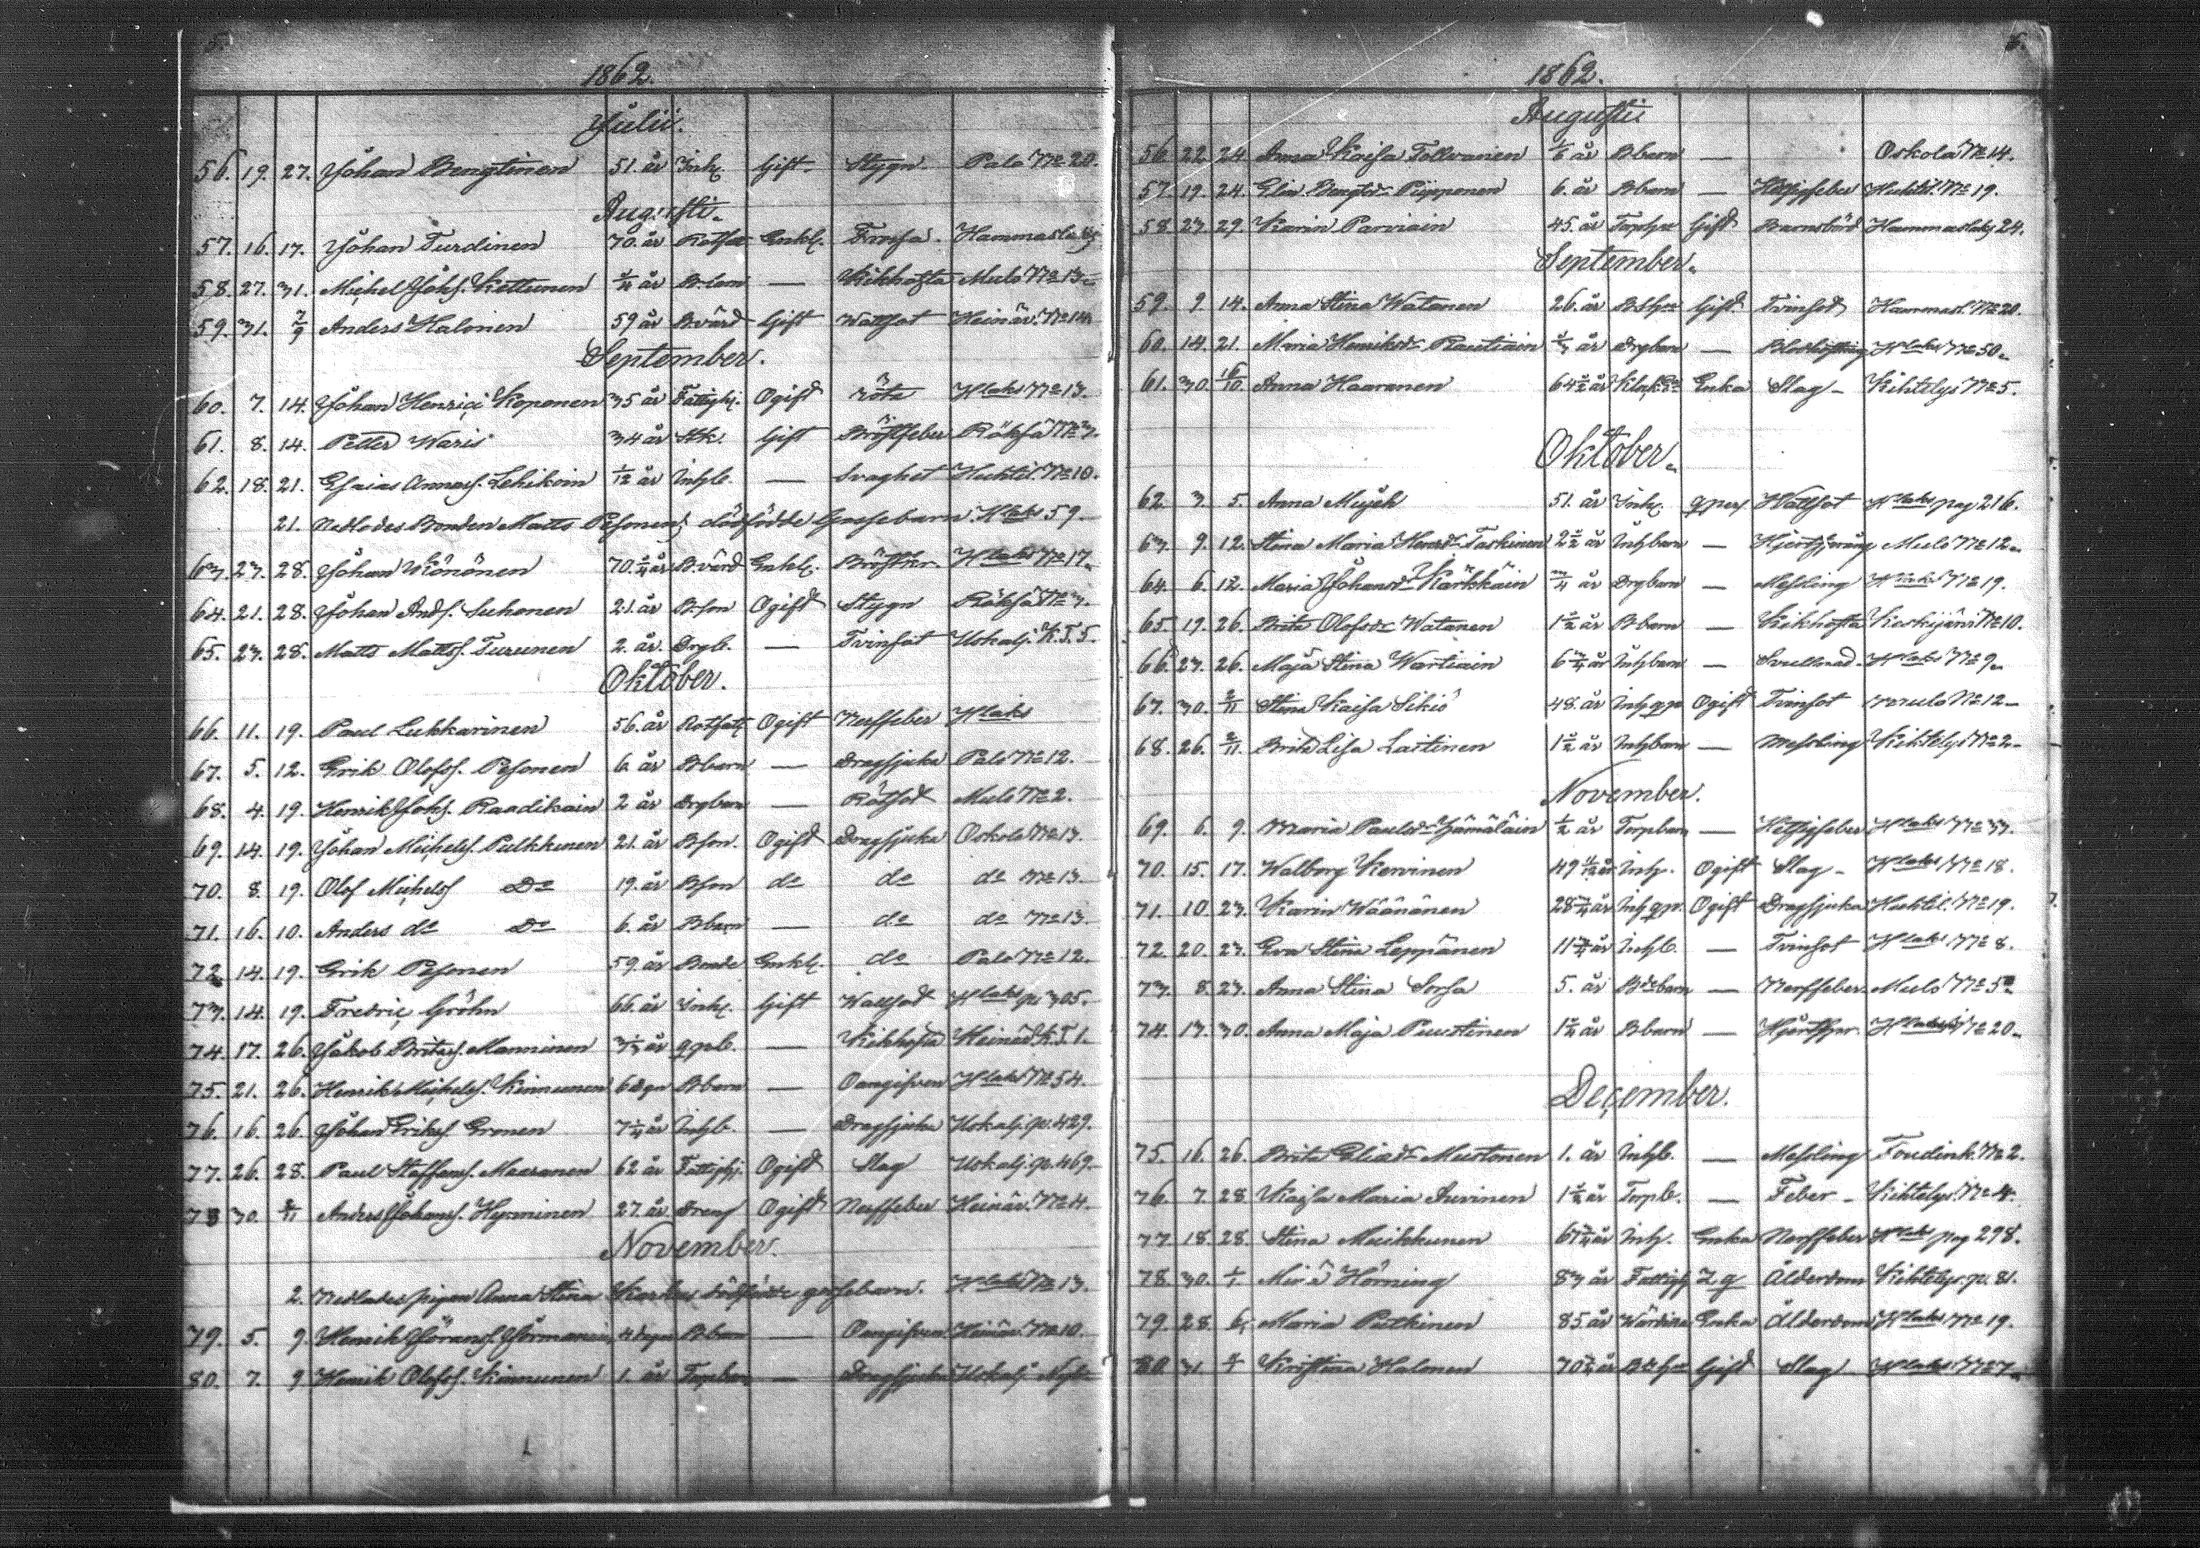 5.
1862.
Julii.
56. 19. 27. Johan Bengtinen 51. år Inh. Gift Stygn. Palo No 20.
Augusti.
57. 16. 17. Johan Turdinen 70. år Enkl. Hammasla
58. 27. 31. Michel Johs. Kettunen 1/4 år B.barn — Kikhosta Mulo No 13.
59. 31. 7/9 Anders Halonen 59 år B.värd Gift Wattsot Heinäv. No 14.
September.
60. 7. 14. Johan Henrici Koponen 35 år Fattighj. Ogift röta Wlaks No 13.
61. 8. 14. Petter Waris 34 år Gift Bröstfeber Röksä No 3.
62. 18. 21. Esaias Annaes. Lehikoin 1/12 år Inhb. — Svaghet Huhtil. No 10.
21. Nedlades Bonden Matts Pesonens dödfödde Gossebarn. Wlaks 59.
63. 23. 28. Johan Könönen 70 år B.värd Enkl. Wlaks No 17.
64. 21. 28. Johan Ands. Suhonen 21. år B.son Ogift Stygn Röksä No 3.
65. 23. 28. Matts Matts. Turunen 2. år. Drgb. — Tvinsot Uskalj. K.T.5.
Oktober.
66. 11. 19. Paul Lukkarinen 56. år Ogift Nerffeber Wlaks
67. 5. 12. Erik Olofss. Pesonen 6 år B.barn — Dragsjuka Palo No 12.
68. 4. 19. Henrik Johs. Raadikain 2 år Drgbarn — Rötsot Mulo No 2.
69. 14. 19. Johan Michels. Pulkkinen 21. år B.son. Ogift Dragsjuka Oskola No 13.
70. 8. 19. Olof Michels Do 19. år B.son do do do No 13.
71. 16. 10. Anders do Do 6. år B.barn — do do No 13.
72. 14. 19. Erik Pesonen 59 år Bonde Enkl. do Palo No 12.
73. 14. 19. Fredric Gröhn 66. år Inh. Gift Wattsot Wlaks p. 305.
74. 17. 26. Jakob Britas. Manninen år — Kikhosta Heinäv. K.T 1.
75. 21. 26. Henrik Michels. Kinnunen 6 dgr B.barn — Oangifven Wlaks No 54.
76. 16. 26. Johan Eriks. Eronen 7 1/4 år Inhb. — Dragsjuka Uskalj. p. 429.
77. 26. 28. Paul Staffans. Maaranen 62 år Fattighj. Ogift Slag Uskalj. p. 469.
78 30. 2/11 Anders Johans. Hyvninen 27. år Dreng Ogift Nerffeber Heinäv. No 4.
November.
2. Nedlades pigan Anna Stina gossebarn. Wlaks No 13.
79. 5. 9. Henrik Görans. 4 dagar B.barn — Oangifven Heinäv. No 10.
80. 7. 9. Henrik Olofss. Kinnunen 1. år Torpbarn — Dragsjuka Uskalj.
6.
1862.
Augusti.
56 22 24 Anna Kaisa Tolvanien 1/6 år B.barn — Oskola No 14.
57. 19. 24. Elin Bengtsdr Piipponen 6. år B.barn — Hetsigfeber Huhtil. No 19.
58 23. 29. Karin Parviain 45. år Gift Barnsbörd Hammaslah 24.
September.
59. 9 14. Anna Stina Watanen 26. år Gift Tvinsot Hammasl. No 20.
60. 14. 21. Maria Henriksdr Rautiain år Drgbarn — Wlaks No 50.
61. 30. 16/10 Anna Haaranen 64 1/2 år Enka Slag — Kihtelys No 5.
Oktober.
62. 3 5. Anna 51. år Inh. Wattsot Wlaks pag 216.
63. 9. 12. Stina Maria Henrdr Taskinen 2 1/2 år Inhbarn — Mulo No 12.
64. 6. 12. Maria Johansdr Karkkäin 3/4 år Drgbarn — Messling Wlaks No 19.
65. 19. 26. Brita Olofsdr Watanen 1 1/2 år B.barn — Kikhosta Keskijärvi No 10.
66. 23. 26. Maja Stina Wartiain 6 3/4 år Inhbarn — Wlaks No 9.
67. 30. 2/11 Stina Kaisa Sikiö 48. år Inh Ogift Tvinsot Mulo No 12.
68. 26. 2/11 Brita Lisa Laitinen 1 1/2 år Inhbarn — Messling Kihtelys No 2.
November.
69. 6. 9. Maria Paulsdr Hämäläin 1/2 år Torpbarn — Hetsigfeber Wlaks No 33.
70. 15. 17. Walborg Kervinen 49 år Inh. Ogift Slag — Wlaks No 18.
71. 10. 23. Karin Wäänänen 28 år Ogift Dragsjuka Huhtil. No 19.
72. 20. 23. Eva Stina Leppänen 11 år Inhb. — Tvinsot Wlaks No 8.
73. 8. 23. Anna Stina Sorsa 5. år — Nerffeber Mulo No 5
74. 13. 30. Anna Maja Puustinen 1 1/2 år B.barn — No 20.
December.
75. 16. 26. Brita Eliasdr Mustonen 1. år Inhb. — Messling No 2.
76. 7. 28. Kajsa Maria Auvinen 1 1/2 år Torpb. — Feber — Kihtelys. No 4.
77. 18. 28. Stina Muikkunen 67 år Inh. Enka Nerffeber Wlaks pag 298.
78. 30. 1/1 Hörning 83 år Fattighj Ålderdom Kihtelys. p. 81.
79. 28. 6/1 Maria Putkinen 85 år Wärdina Enka Ålderdom Wlaks No 19.
80 31 Kristina Halonen 70 år Gift Slag Wlaks No 7.